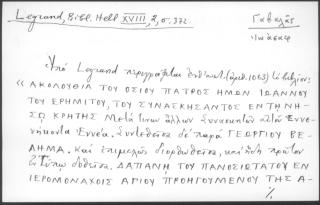 Legrand, Bibl. Hell XVIII, 2, σ. 372.
Γαβαλᾶς
Ἰωάσαφ
Ὑπὸ Legrand περιγράφεται (ἀριθ. 1063) τὸ βιβλίον:
"ΑΚΟΛΟΥΘΙΑ ΤΟΥ ΟΣΙΟΥ ΠΑΤΡΟΣ ΗΜΩΝ ΙΩΑΝΝΟΥ
ΤΟΥ ΕΡΗΜΙΤΟΥ, ΤΟΥ ΣΥΝΑΣΚΗΣΑΝΤΟΣ ΕΝ ΤΗ ΝΗ-
ΣΩ ΚΡΗΤΗΣ Μετὰ ἄλλων Συνασκητῶν αὐτοῦ Ἐνενε-
νήκοντα Ἐννέα. Συντεθεῖσα δὲ παρὰ ΓΕΩΡΓΙΟΥ ΒΕ-
ΛΗΜΑ. Καὶ ἐπιμελῶς διορθωθεῖσα, πρῶτον
Τύπῳ δοθεῖσα. ΔΑΠΑΝΗ ΤΟΥ ΠΑΝΟΣΙΩΤΑΤΟΥ ΕΝ
ΙΕΡΟΜΟΝΑΧΟΙΣ ΑΓΙΟΥ ΠΡΟΗΓΟΥΜΕΝΟΥ ΤΗΣ Α-
./.